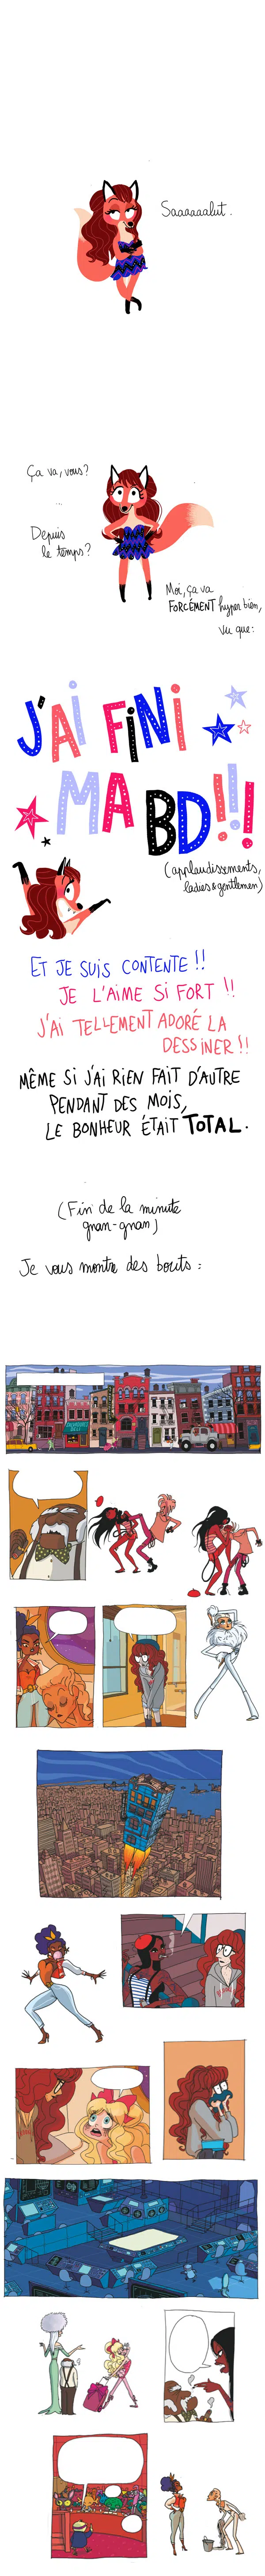 Saaaaaalut.
Ça va, vous?
...
Depuis
le temps?
Moi, ça va
FORCÉMENT hyper bien,
vu que:
J'AI FINI
MA BD!!!
(applaudissements,
ladies & gentlemen)
ET JE SUIS CONTENTE!!
JE L'AIME SI FORT!!
J'AI TELLEMENT ADORÉ LA
DESSINER!!
MÊME SI J'AI RIEN FAIT D'AUTRE
PENDANT DES MOIS,
LE BONHEUR ÉTAIT TOTAL.
(Fin de la minute
gnan-gnan)
Je vous montre des bouts :